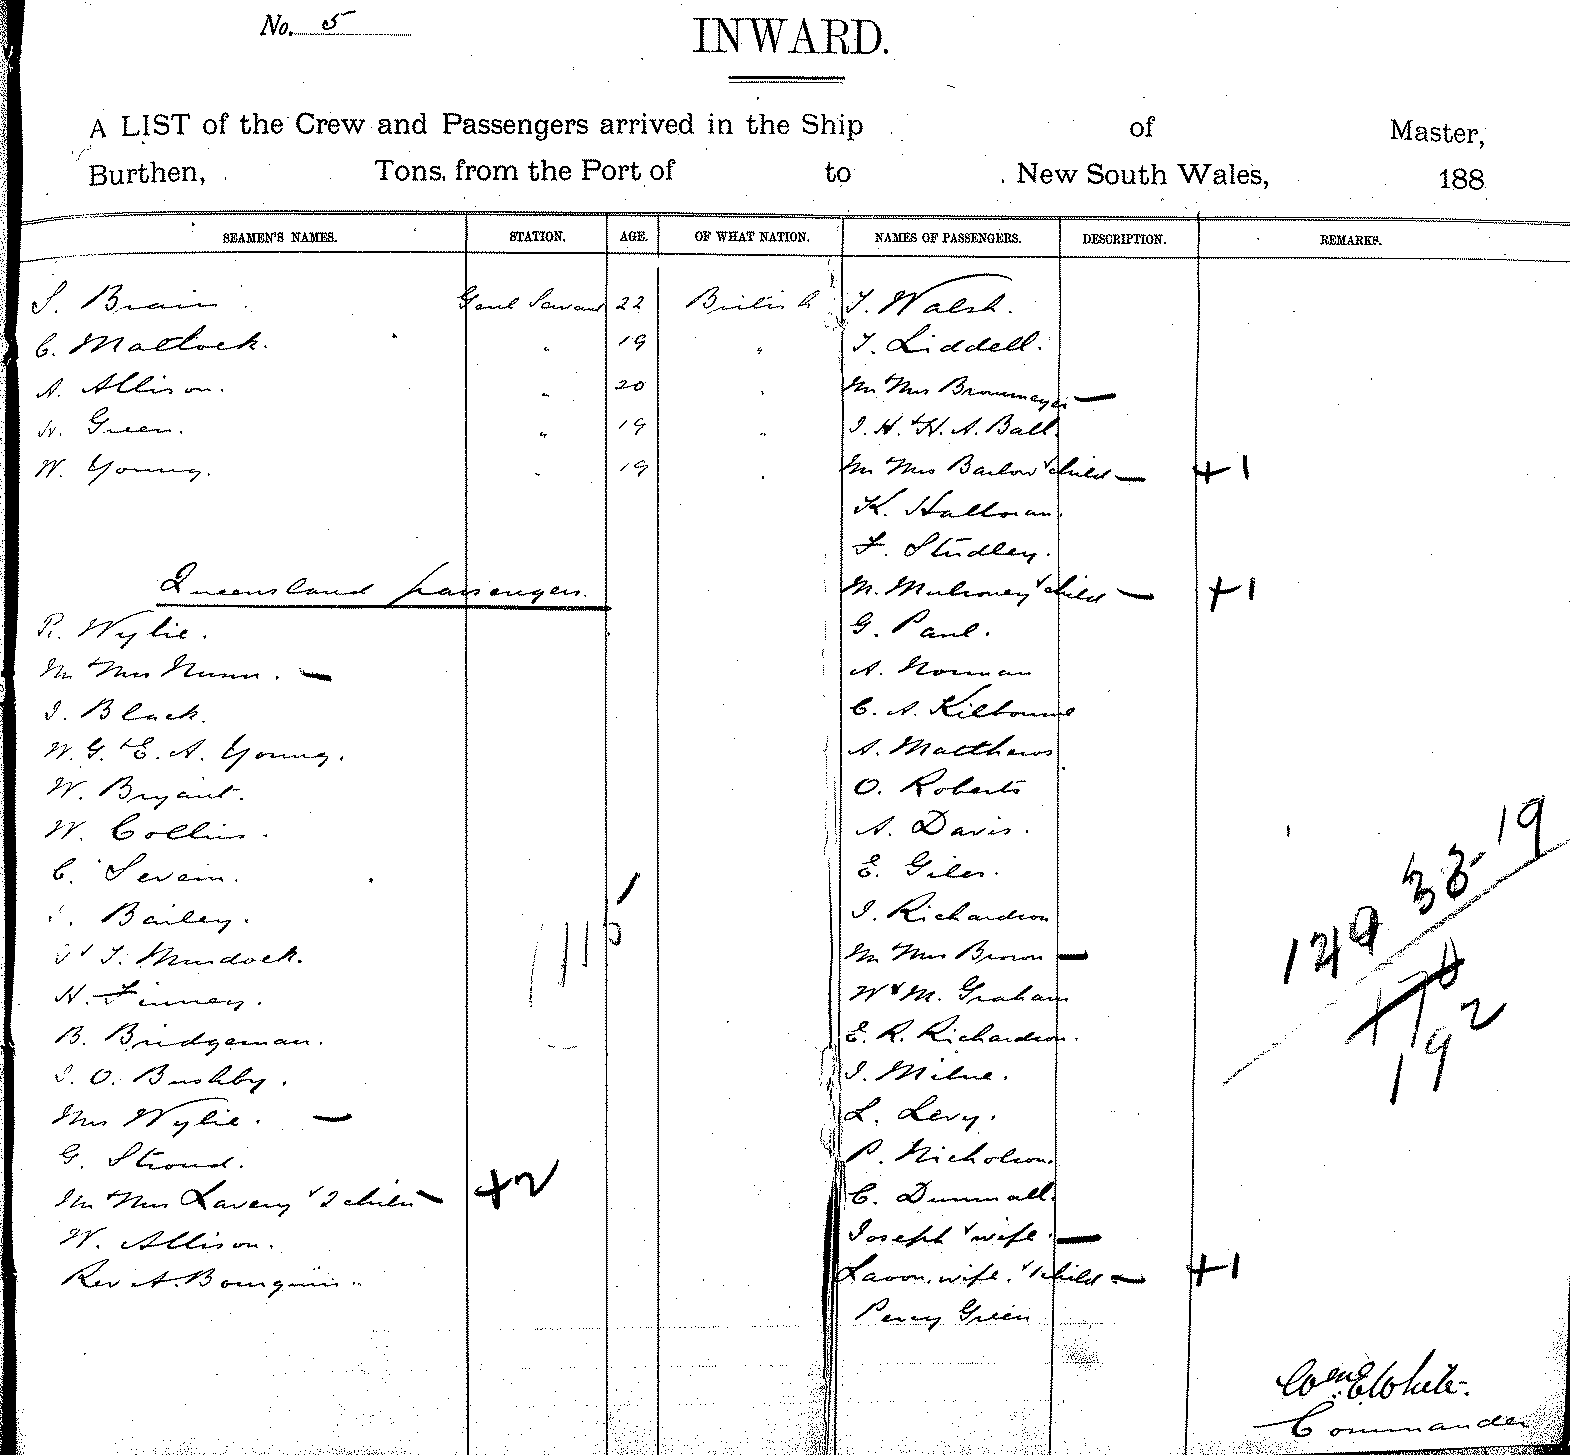 No. 5
INWARD.
A LIST of the Crew and Passengers arrived in the Ship of Master,
Burthen, Tons, from the Port of to New South Wales, 188
SEAMEN'S NAMES. STATION. AGE. OF WHAT NATION. NAMES OF PASSENGERS. DESCRIPTION. REMARKS.
S. Brain Genl Servant 22 British T. Walsh.
C. Matlock. " 19 " T. Liddell.
A. Allison. " 20 " Mr & Mrs Brownmeyer —
H. Green. " 19 " J. H. & H. A. Ball.
W. Young. " 19 " Mr & Mrs Barlow & child — +1
K. Hallman.
F. Studley.
Queensland passengers. M. Mulroney & child — +1
R. Wylie. G. Paul.
Mr & Mrs Nunn. — A. Norman
J. Black. C. A. Kilbourne
W. G. & E. A. Young. A. Matthews
W. Bryant. O. Roberts
W. Collins. A. Davis.
C. Swain. E. Giles.
Bailey. J. Richardson
& T. Murdock. Mr & Mrs Brown —
H. Finney. W & M. Graham
B. Bridgeman. E. R. Richardson.
J. O. Bushby. J. Milne.
Mrs Wylie. — L. Levy.
G. Stroud. P. Nicholson.
Mr & Mrs Lavery & 2 childn — +2 C. Dummall.
W. Allison. Joseph & wife. —
Rev A. Bourquin. Lavon, wife, & 1 child — +1
Percy Green
115
149 33 - 19
192
Wm E White.
Commander